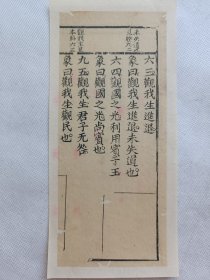 六三觀我生進退
象曰觀我生進退未失道也
六四觀國之光利用賓于王
象曰觀國之光尚賓也
九五觀我生君子无咎
象曰觀我生觀民也